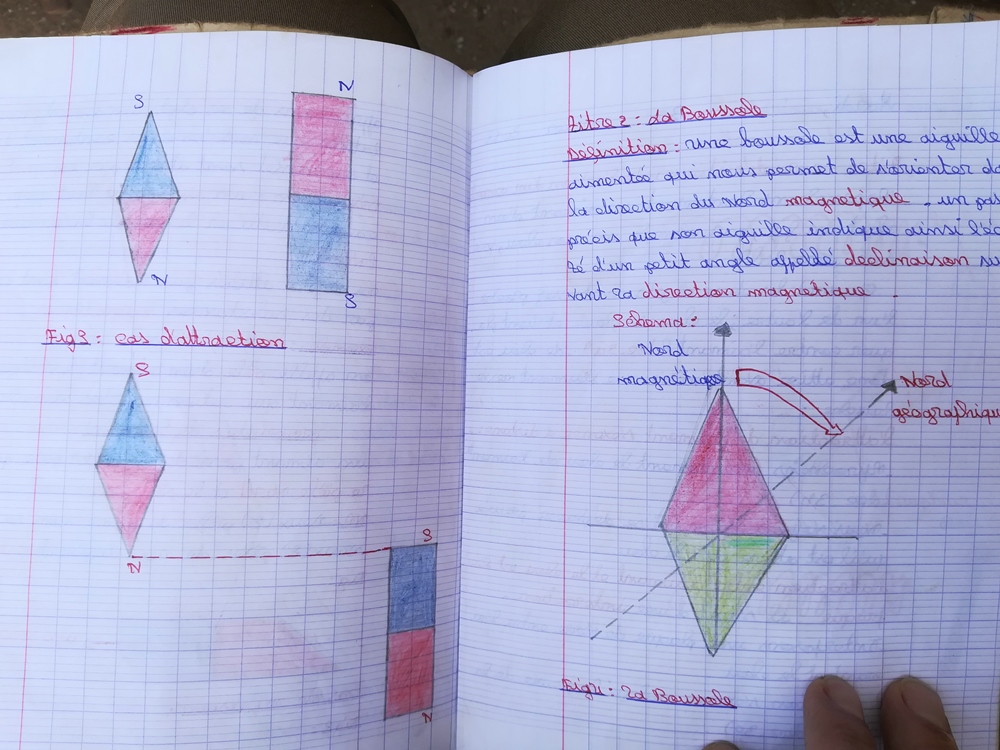 S
N
N
S
Fig3 : cas d'attraction
S
N
S
N
Titre 2 : La Boussole
Définition : une boussole est une aiguille
aimentée qui nous permet de s'orienter
la direction du Nord magnetique . un
précis que son aiguille indique ainsi
té d'un petit angle appelé declinaison
vant la direction magnetique .
Schema :
Nord
magnétique
Nord
géographique
Fig1 : La Boussole